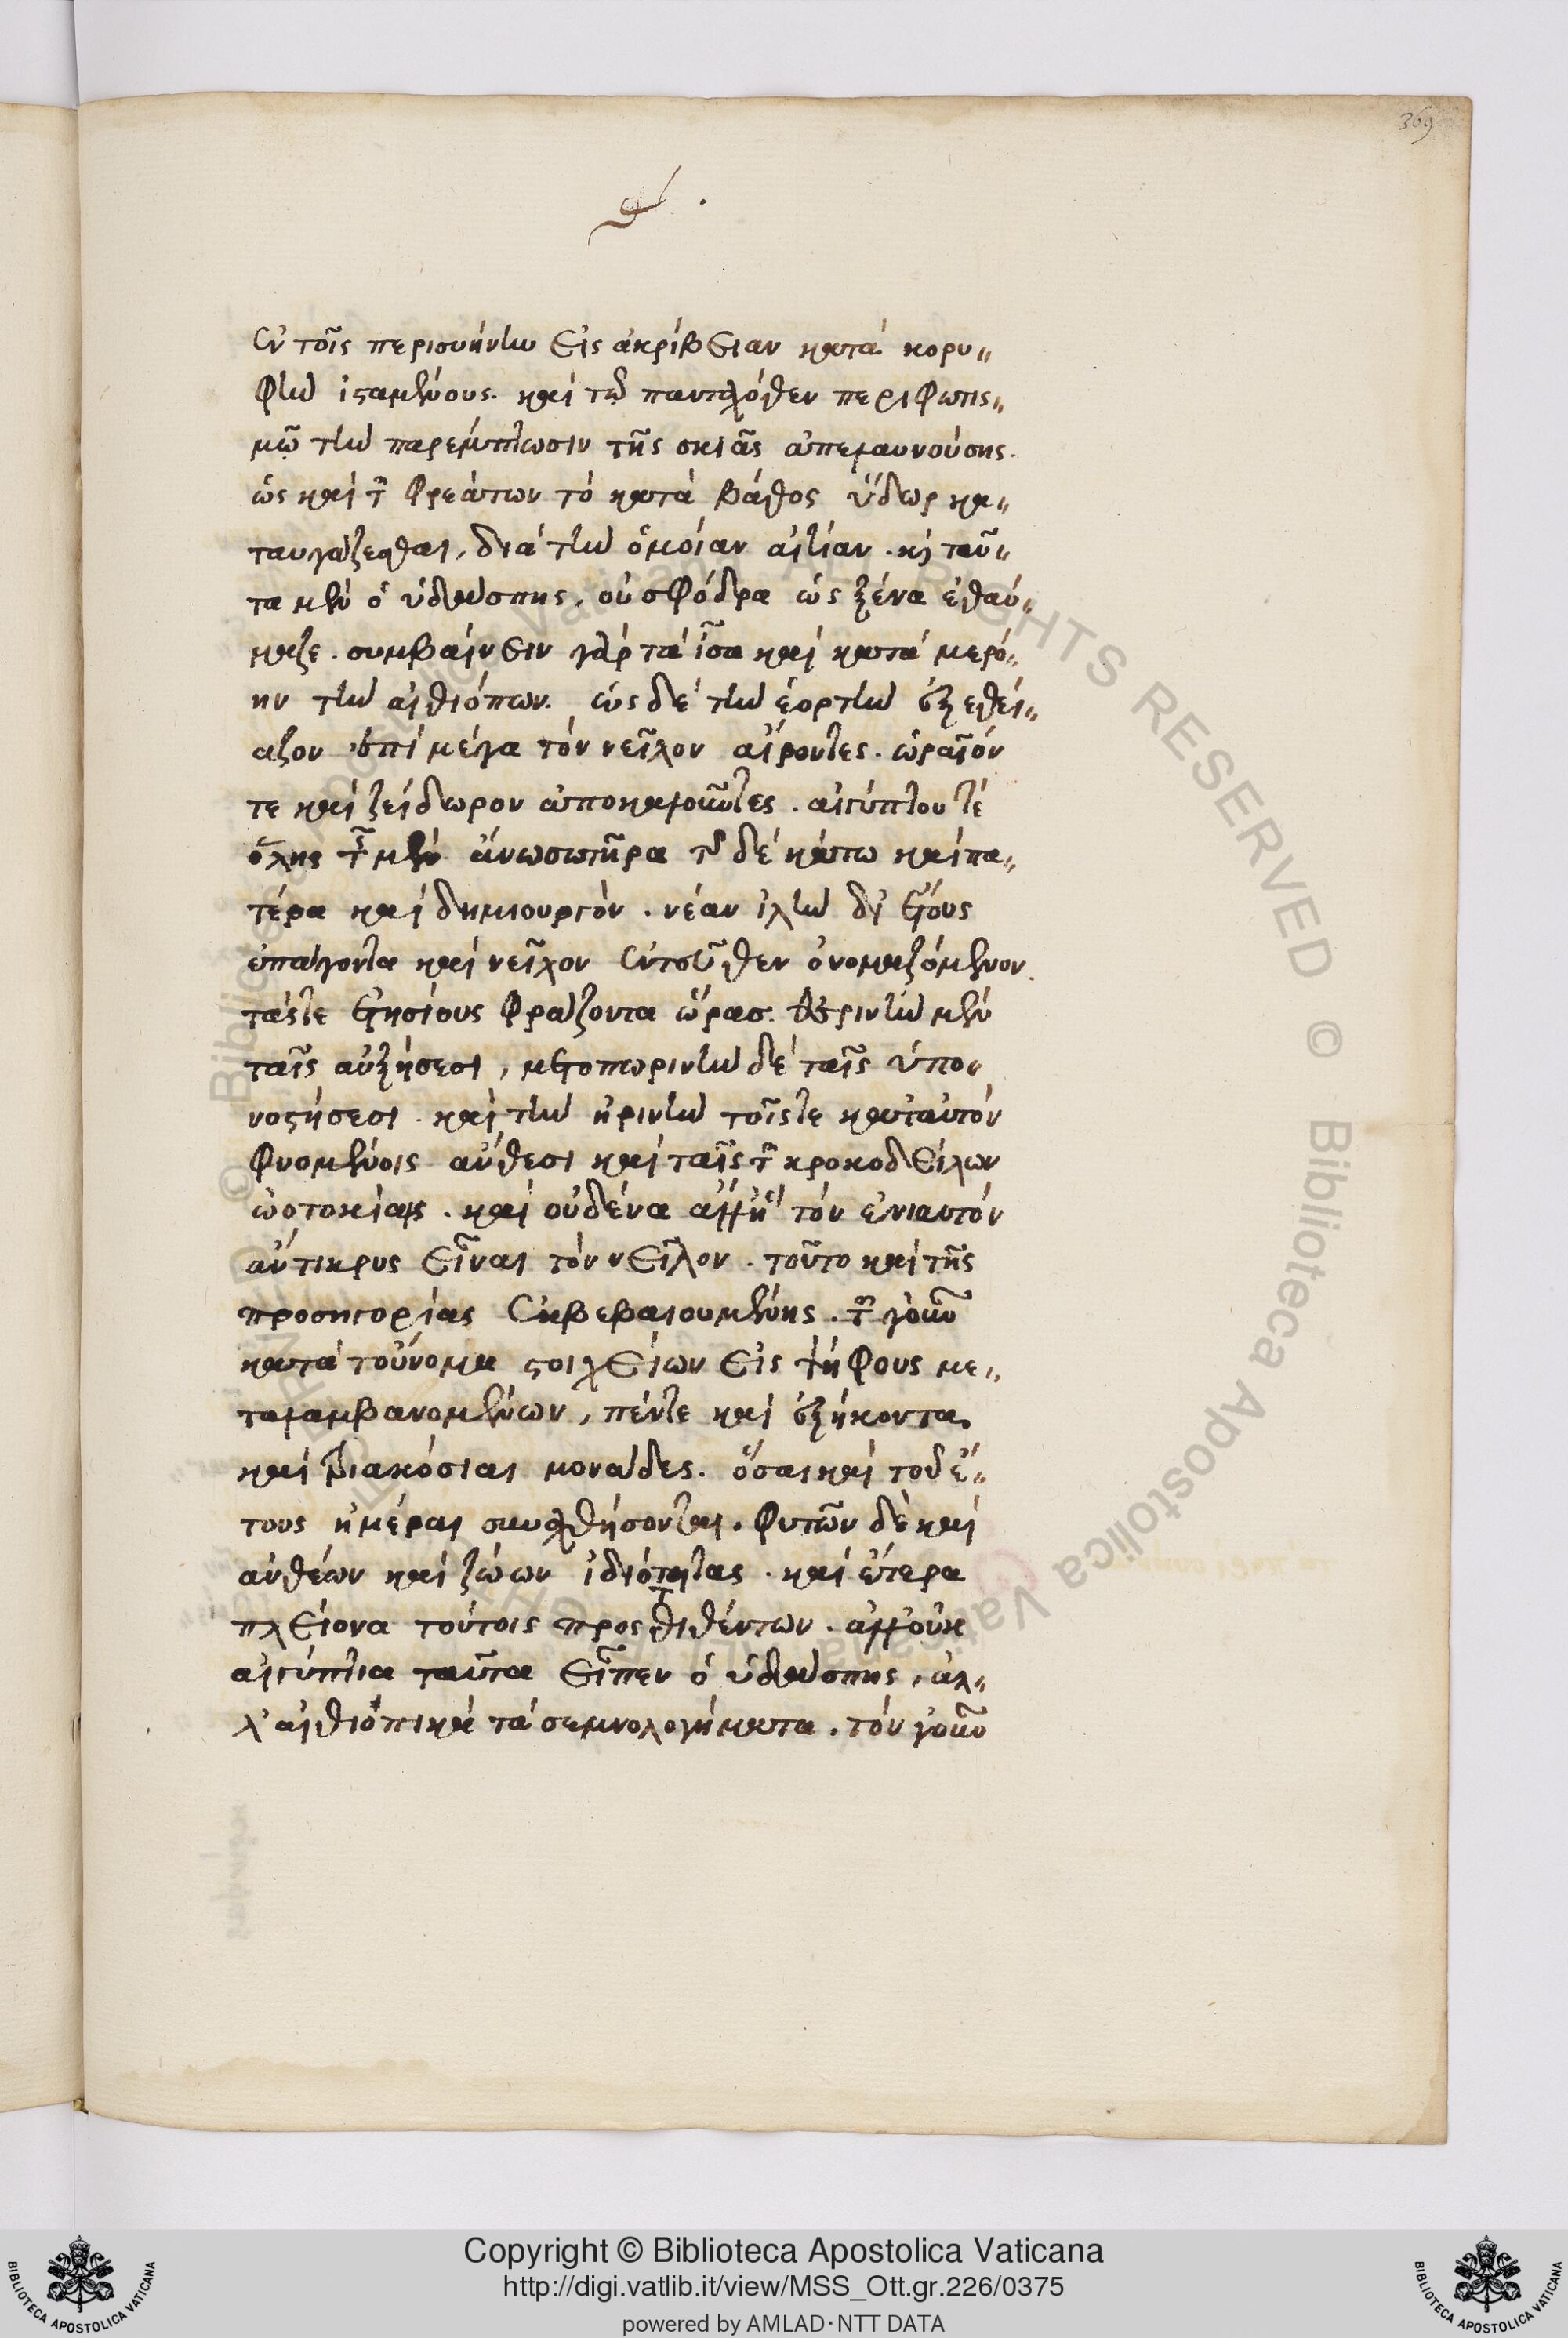 369
ἐν τοῖς περισυήνην εἰς ἀκρίβειαν κατὰ κορυ„
φὴν ἱσταμένους. καὶ τῷ πανταχόθεν περιφωτισ„
μῷ τὴν παρέμπτωσιν τῆς σκιᾶς ἀπελαυνούσης.
ὡς καὶ τῶν φρεάτων τὸ κατὰ βάθος ὕδωρ κα„
ταυγάζεσθαι, διὰ τὴν ὁμοίαν αἰτίαν. καὶ ταῦ„
τα μὲν ὁ ὑδάσπης, οὐ σφόδρα ὡς ξένα ἐθαύ„
μαζε. συμβαίνειν γὰρ τὰ ἴσα καὶ κατὰ μερό„
ην τὴν αἰθιόπων. ὡς δὲ τὴν ἑορτὴν ἐξεθεί„
αζον ἐπὶ μέγα τὸν νεῖλον αἴροντες. ὡραῖόν
τε καὶ ζείδωρον ἀποκαλοῦντες. αἰγύπτου τέ
ὅλης τῆς μὲν ἄνω σωτῆρα τῆς δὲ κάτω καὶ πα„
τέρα καὶ δημιουργόν. νέαν ἰλὺν δι' ἔτους
ἐπάγοντα καὶ νεῖλον ἐντεῦθεν ὀνομαζόμενον.
τάς τε ἐτησίους φράζοντα ὥρας. θερινὴν μὲν
ταῖς αὐξήσεσι, μετοπωρινὴν δὲ ταῖς ὑπο„
νοστήσεσι. καὶ τὴν ἠρινὴν τοῖς τε κατ' αὐτὸν
φυομένοις ἄνθεσι καὶ ταῖς τῶν κροκοδείλων
ὠοτοκίαις. καὶ οὐδένα ἀλλ' ἢ τὸν ἐνιαυτὸν
ἄντικρυς εἶναι τὸν νεῖλον. τοῦτο καὶ τῆς
προσηγορίας ἐκβεβαιουμένης. τῶν γοῦν
κατὰ τοὔνομα στοιχείων εἰς ψήφους με„
ταλαμβανομένων, πέντε καὶ ἑξήκοντα
καὶ τριακόσιαι μονάδες. ὅσαι καὶ τοῦ ἔ„
τους ἡμέραι συναχθήσονται. φυτῶν δὲ καὶ
ἀνθέων καὶ ζώων ἰδιότητας. καὶ ἕτερα
πλείονα τούτοις προστιθέντων. ἀλλ' οὐκ
αἰγύπτια ταῦτα εἶπεν ὁ ὑδάσπης, ἀλ„
λ' αἰθιοπικὰ τὰ σεμνολογήματα. τὸν γοῦν
Copyright © Biblioteca Apostolica Vaticana
http://digi.vatlib.it/view/MSS_Ott.gr.226/0375
powered by AMLAD·NTT DATA